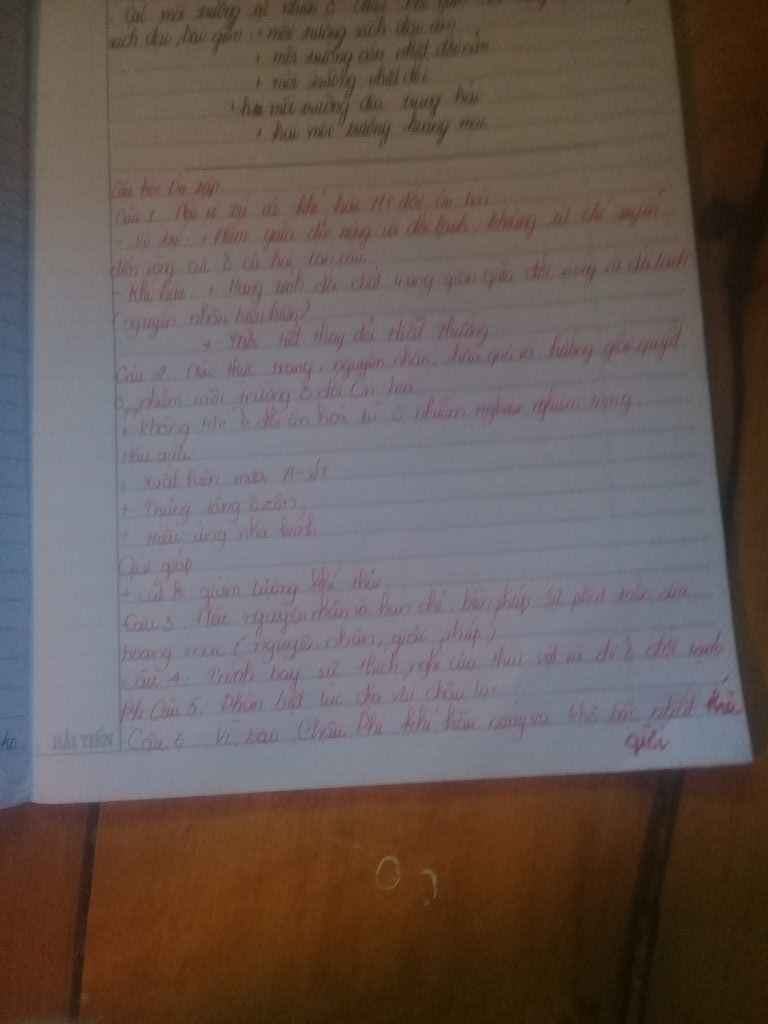 Các môi trường tự nhiên ở Châu Phi
xích đạo, bao gồm: + môi trường xích đạo ẩm
+ môi trường cận nhiệt đới ẩm
+ môi trường nhiệt đới
+ hai môi trường địa trung hải
+ hai môi trường hoang mạc
Câu hỏi ôn tập
Câu 1. Nêu vị trí và khí hậu MT đới ôn hoà
- Vị trí: + Nằm giữa đới nóng và đới lạnh, khoảng từ chí tuyến
đến vòng cực ở cả hai bán cầu
- Khí hậu: + Mang tính chất trung gian giữa đới nóng và đới lạnh
(nguyên nhân biểu hiện)
+ thời tiết thay đổi thất thường
Câu 2. Nêu thực trạng, nguyên nhân, hậu quả và hướng giải quyết
ô nhiễm môi trường ở đới ôn hoà
+ Không khí ở đới ôn hoà bị ô nhiễm nghiêm trọng.
Hậu quả
+ Xuất hiện mưa A-xít
+ Thủng tầng ôzôn
+ Hiệu ứng nhà kính
Giải pháp
+ giảm lượng khí thải
Câu 3. Nêu nguyên nhân và hạn chế, biện pháp sự phát triển của
hoang mạc (nguyên nhân, giải pháp)
Câu 4: Trình bày sự thích nghi của thực vật và đv ở đới lạnh
Câu 5: Phân biệt lục địa và châu lục
Câu 6: Vì sao Châu Phi khí hậu nóng và khô bậc nhất thế
giới
HẢI TIẾN